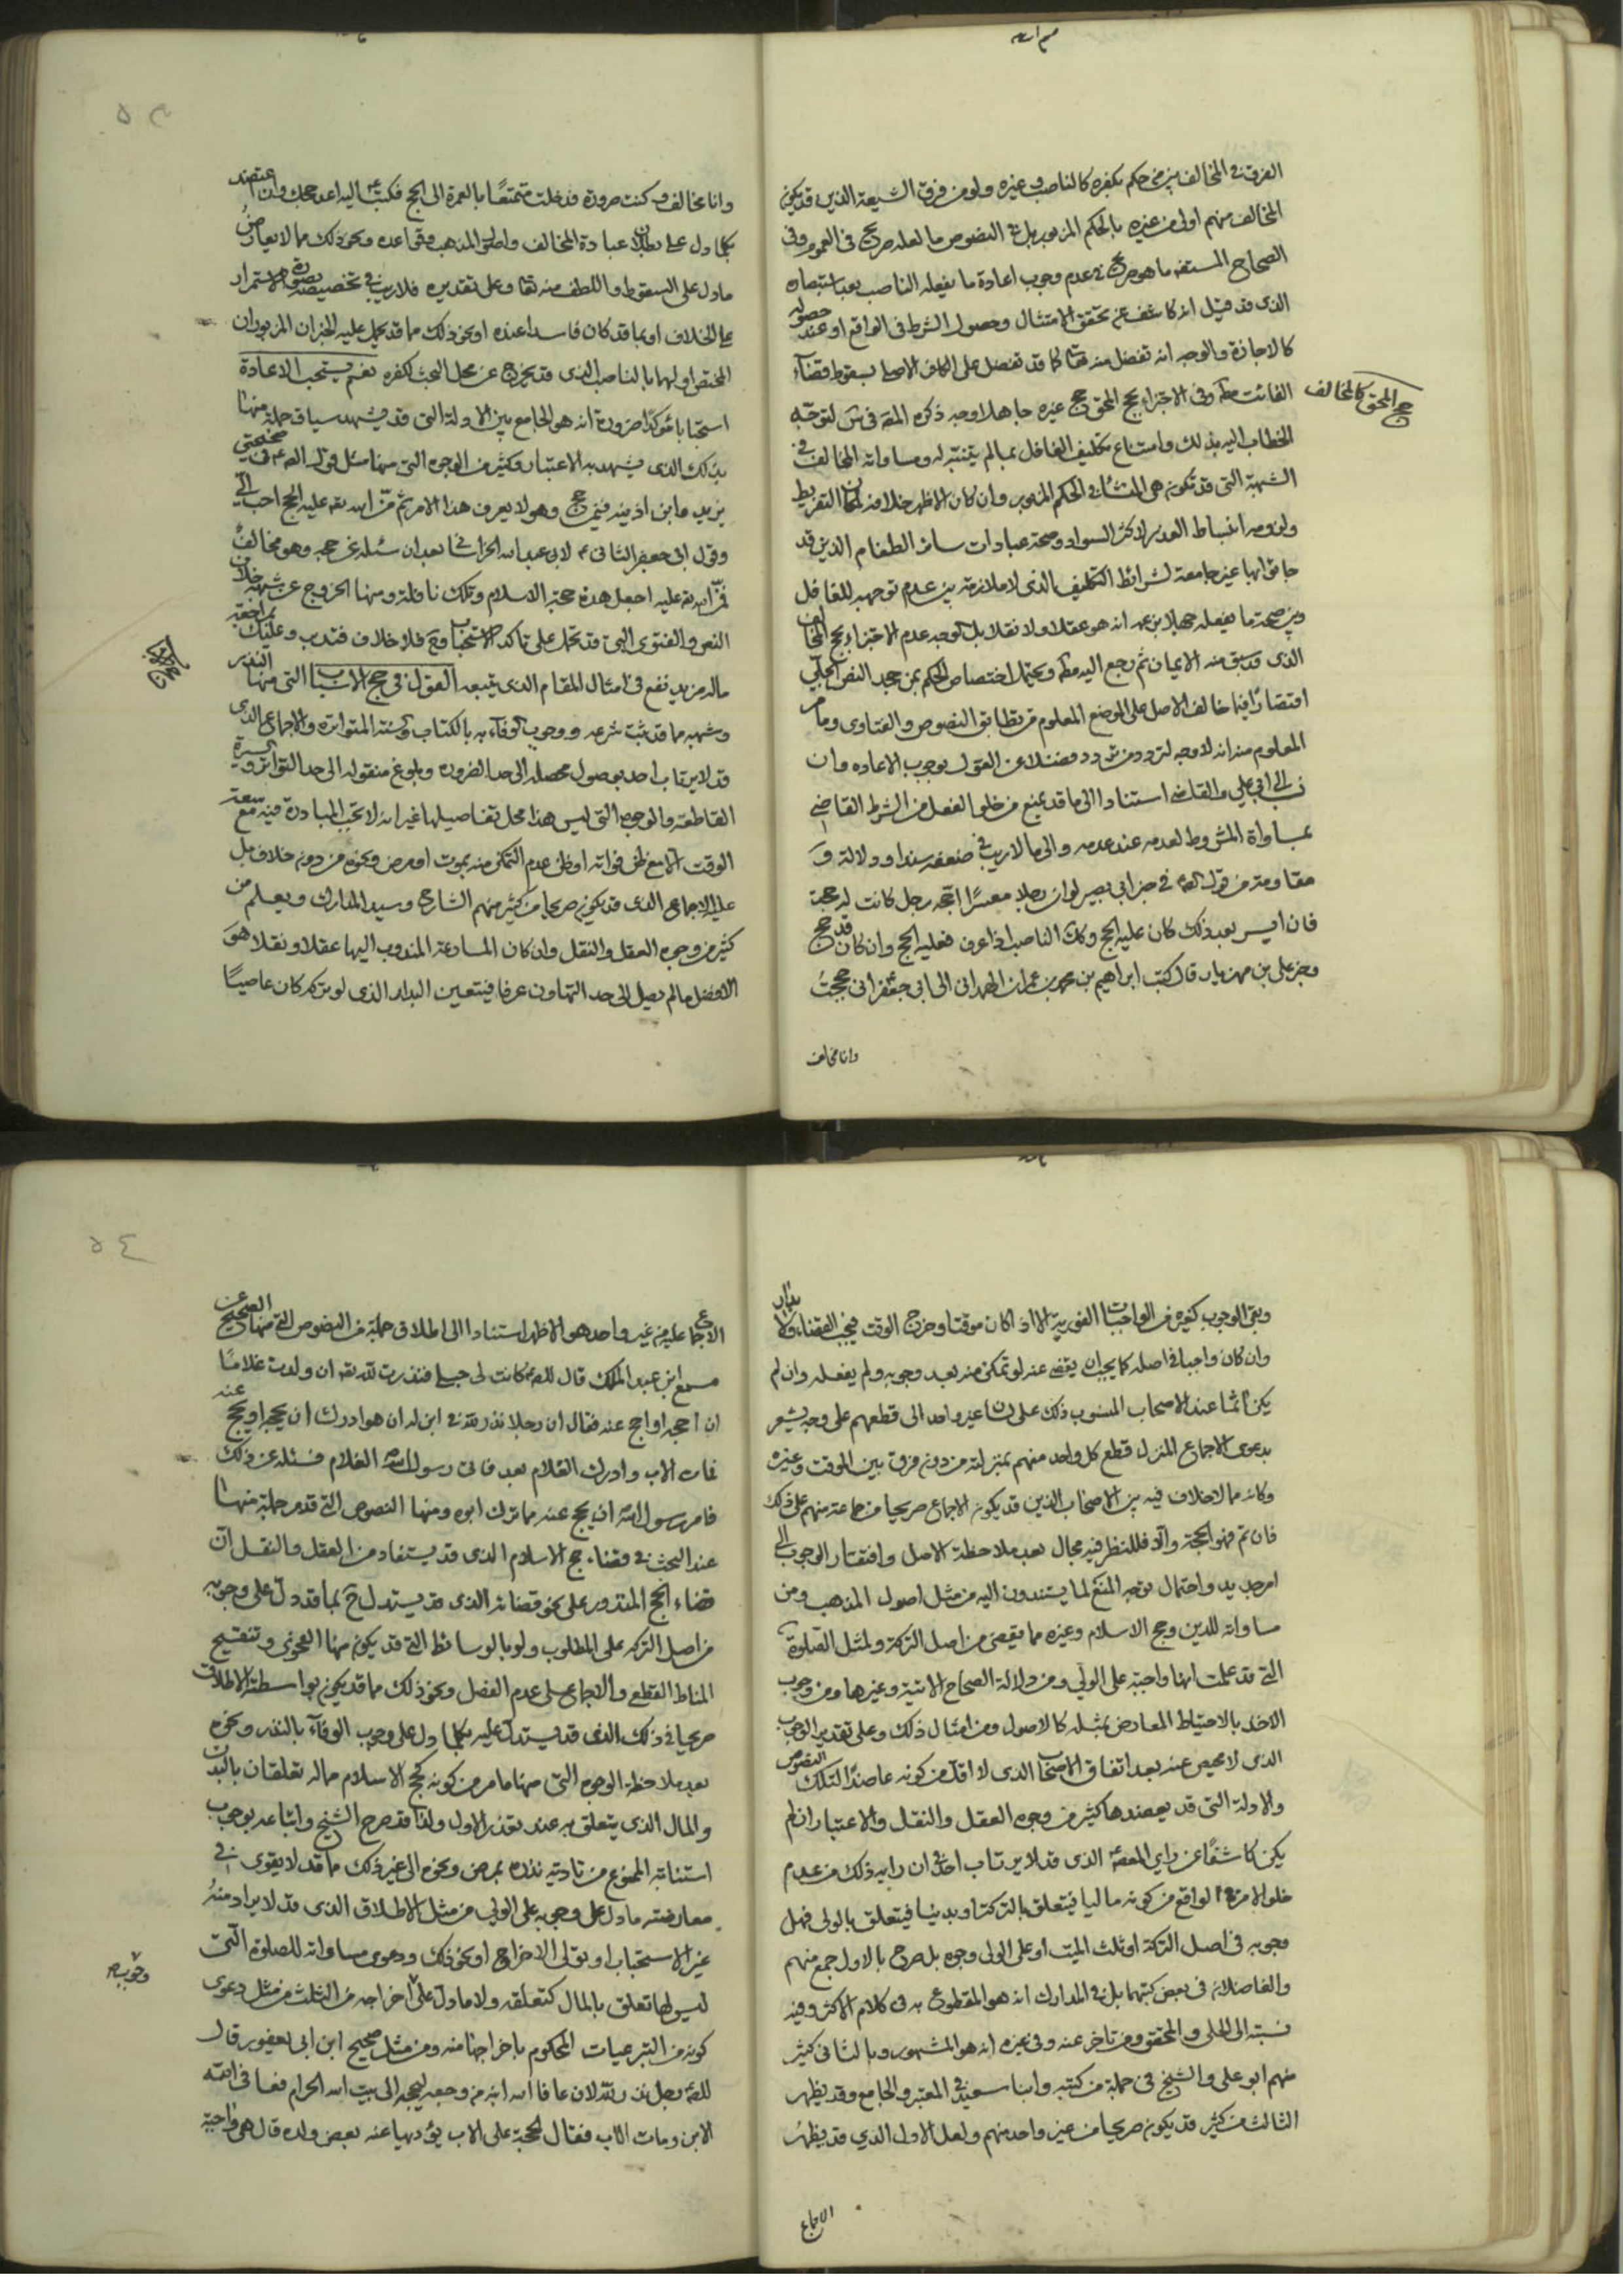 الفرق في المخالف بين من حكم بكفره كالناصب وغيره ولو من فرق الشيعة الذين قد يكون
المخالف منهم اولى من غيره بالحكم المزبور بل في النصوص ما لعله صريح في العموم وفي
الصحاح المستفيضة ما هو صريح في عدم وجوب اعادة ما يفعله الناصب بعد استبصاره
الذي قد قيل انه كاشف عن تحقق الامتثال وحصول الشرط في الواقع او عند حصوله
كالاجازة والوجه انه تفضل منه تعالى كما قد تفضل على الكافر الاصلي بسقوط قضاء
الفائت وفي الاجتزاء بحج المحق حج غيره جاهلا وجه ذكره في لتوجه
حج المحق كالمخالف
الخطاب اليه بذلك وامتناع تكليف الغافل بما لم يتنبه له ومساواته المخالف في
الشبهة التي قد تكون هي المنشأ في الحكم المزبور وان كان الاظهر خلافه لمكان التفريط
ولزومه انبساط العذر لاكثر السواد وصحة عبادات سائر الطغام الذين قد
جاؤا بها غير جامعة لشرائط التكليف الذي لا ملازمة بين عدم توجهه للغافل
وبين صحة ما يفعله جهلا بزعمه انه هو عقلا ولا نقلا بل الوجه عدم الاجتزاء بحج المخالف
الذي قد سبق منه الايمان ثم رجع اليه ويحتمل اختصاص الحكم بمن جحد النص الجلي
اقتصارا فيما خالف الاصل على الموضع المعلوم من تطابق النصوص والفتاوى وما مر
المعلوم منه انه لا وجه لتردد من تردد فضلا عن القول بوجوب الاعاده وان
نسب الى ابي علي والقاضي استنادا الى ما قد يمنع من خلو الفعل من الشرط القاضي
بمساواة المشروط لعدمه عند عدمه والى ما لا ريب في ضعفه سندا ودلالة و
مقاومة من قوله في خبر ابي بصير لو ان رجلا معسرا احجه رجل كانت له حجة
فان ايسر بعد ذلك كان عليه الحج وكذلك الناصب اذا عرف فعليه الحج وان كان قد حج
وخبر علي بن مهزيار قال كتب ابراهيم بن محمد بن عمران الهمداني الى ابي جعفر اني حججت
وانا مخالف
وانا مخالف وكنت صرورة فدخلت متمتعا بالعمرة الى الحج فكتب اليه اعد حجك وان اعتضد
بكلما دل على بطلان عبادة المخالف واصول المذهب وقواعده ونحو ذلك مما لا يعارض
ما دل على السقوط واللطف منه تعالى وعلى تقديره فلا ريب في تخصيصه بصورة الاستمرار
على الخلاف او بما قد كان فاسدا عنده او نحو ذلك مما قد يحمل عليه الخبران المزبوران
المختص اولهما بالناصب الذي قد يخرج عن محل البحث لكفره نعم يستحب الاعادة
استحبابا مؤكدا ضرورة انه هو الجامع بين الادلة التي قد يشهد سياق جملة منها
بذلك الذي يشهد به الاعتبار وكثير من الوجوه التي منها مثل قوله في صحيحتي
بريد وابن اذينه فيمن حج وهو لا يعرف هذا الامر ثم من الله عليه الحج احب الي
وقول ابي جعفر الثاني لابي عبد الله الخراساني بعد ان سئله عن حجه وهو مخالف
ثم من الله عليه اجعل هذه حجة الاسلام وتلك نافلة ومنها الخروج عن شبهة خلاف
النص والفتوى التي قد تحمل على تاكد الاستحباب وح فلا خلاف فتدبر وعليك بمراجعة
ما له مزيد نفع في امثال المقام الذي يتبعه القول في حج الاسباب التي منها النذر
وشبهه ما قد ثبت شرعه ووجوب الوفاء به بالكتاب والسنة المتواترة والاجماع الذي
قد لا يرتاب احد بوصول محصله الى حد الضرورة وبلوغ منقوله الى حد التواتر والسيرة
القاطعة والوجوه التي ليس هذا محل تفاصيلها غير انه لا تجب المبادرة فيه مع سعة
الوقت الا مع ظن فواته او ظن عدم التمكن منه بموت او مرض ونحوه من دون خلاف بل
عليه الاجماع الذي قد يكون صريحا من كثير منهم الشارح وسيد المدارك ويعلم من
كثير من وجوه العقل والنقل وان كان المسارعة المندوب اليها عقلا ونقلا هو
الافضل ما لم يصل الى حد التهاون عرفا فيتعين البدار الذي لو تركه كان عاصيا
وبقي الوجوب كغيره من الواجبات الفورية الا اذا كان موقتا وخرج الوقت فيجب القضاء
وان كان واجبا في اصله كما يجب ان يقضى عنه لو تمكن منه بعد وجوبه ولم يفعله وان لم
يكن آثما عند الاصحاب المنسوب ذلك على لسان غير واحد الى قطعهم على وجه يشعر
بدعوى الاجماع المنزل قطع كل واحد منهم بمنزلته من دون فرق بين الموقت وغيره
وكانه مما لا خلاف فيه بين الاصحاب الذين قد يكون الاجماع صريحا من جماعة منهم على ذلك
فان تم فهو الحجة والا فللنظر فيه مجال بعد ملاحظة الاصل وافتقار الوجوب الى
امر جديد واحتمال توجه المنع لما يستندون اليه من مثل اصول المذهب ومن
مساواته للدين وحج الاسلام وغيره مما يقضى من اصل التركة ولمثل الصلوة
التي قد علمت انها واجبة على الولي ومن دلالة الصحاح الاتية وغيرها ومن وجوب
الاخذ بالاحتياط المعارض بمثله كالاصول ومن امثال ذلك وعلى تقدير الوجوب
الذي لا محيص عنه بعد اتفاق الاصحاب الذي لا اقل من كونه عاضدا لتلك النصوص
والادلة التي قد يعضدها كثير من وجوه العقل والنقل والاعتبار ان لم
يكن كاشفا عن راي المعصوم الذي قد لا يرتاب احد في ان رايه ذلك من عدم
خلو الامر في الواقع من كونه ماليا فيتعلق بالتركة او بدنيا فيتعلق بالولي فهل
وجوبه في اصل التركة او ثلث الميت او على الولي وجوه بل صرح بالاول جمع منهم
والفاضلان في بعض كتبهما بل في المدارك انه هو المقطوع به في كلام الاكثر وفيه
نسبته الى الحلي والمحقق ومن تاخر عنه وفي غيره انه هو المشهور وبالثاني كثير
منهم ابو علي والشيخ في جملة من كتبه وابنا سعيد في المعتبر والجامع وقد يظهر
الثالث من كثير قد يكون صريحا من غير واحد منهم ولعل الاول الذي قد يظهر
الاجماع
الاجماع عليه من غير واحد هو الاظهر استنادا الى اطلاق جملة من النصوص التي منها الصحيح عن
مسمع ابن عبد الملك قال كانت لي جارية حبلى فنذرت لله تعالى ان ولدت غلاما
ان احجه او احج عنه فقال ان رجلا نذر لله في ابن له ان هو ادرك ان يحجه او يحج عنه
فمات الاب وادرك الغلام بعد فاتى رسول الله الغلام فسئله عن ذلك
فامر رسول الله ان يحج عنه مما ترك ابوه ومنها النصوص التي قد مر جملة منها
عند البحث في قضاء حج الاسلام الذي قد يستفاد من العقل والنقل ان
قضاء الحج المنذور على نحو قضائه الذي قد يستدل ح بما قد دل على وجوبه
من اصل التركه على المطلوب ولو بالوسائط التي قد يكون منها الفحوى وتنقيح
المناط القطعي والاجماع على عدم الفصل ونحو ذلك مما قد يكون بواسطة الاطلاق
صريحا في ذلك الذي قد يستدل عليه بكلما دل على وجوب الوفاء بالنذر ونحوه
بعد ملاحظة الوجوه التي منها ما مر من كونه كحج الاسلام مما له تعلقان بالبدن
والمال الذي يتعلق به عند تعذر الاول ولذا قد صرح الشيخ واتباعه بوجوب
استنابة الممنوع من تادية نذره بمرض ونحوه الى غير ذلك مما قد لا يقوى في
معارضته ما دل على وجوبه على الولي من مثل الاطلاق الذي قد لا يراد منه
غير الاستحباب او تولي الاخراج او نحو ذلك ودعوى مساواته للصلوة التي
ليس لها تعلق بالمال كتعلقه ولا ما دل على اخراجه من الثلث من مثل دعوى
وجوب
كونه من التبرعيات المحكوم باخراجها منه ومن مثل صحيح ابن ابي يعفور قال
رجل نذر لله لان عافا الله ابنه من وجعه ليحجه الى بيت الله الحرام فعافى الله
الابن ومات الاب فقال الحجة على الاب يؤديها عنه بعض ولده قال هي واجبة